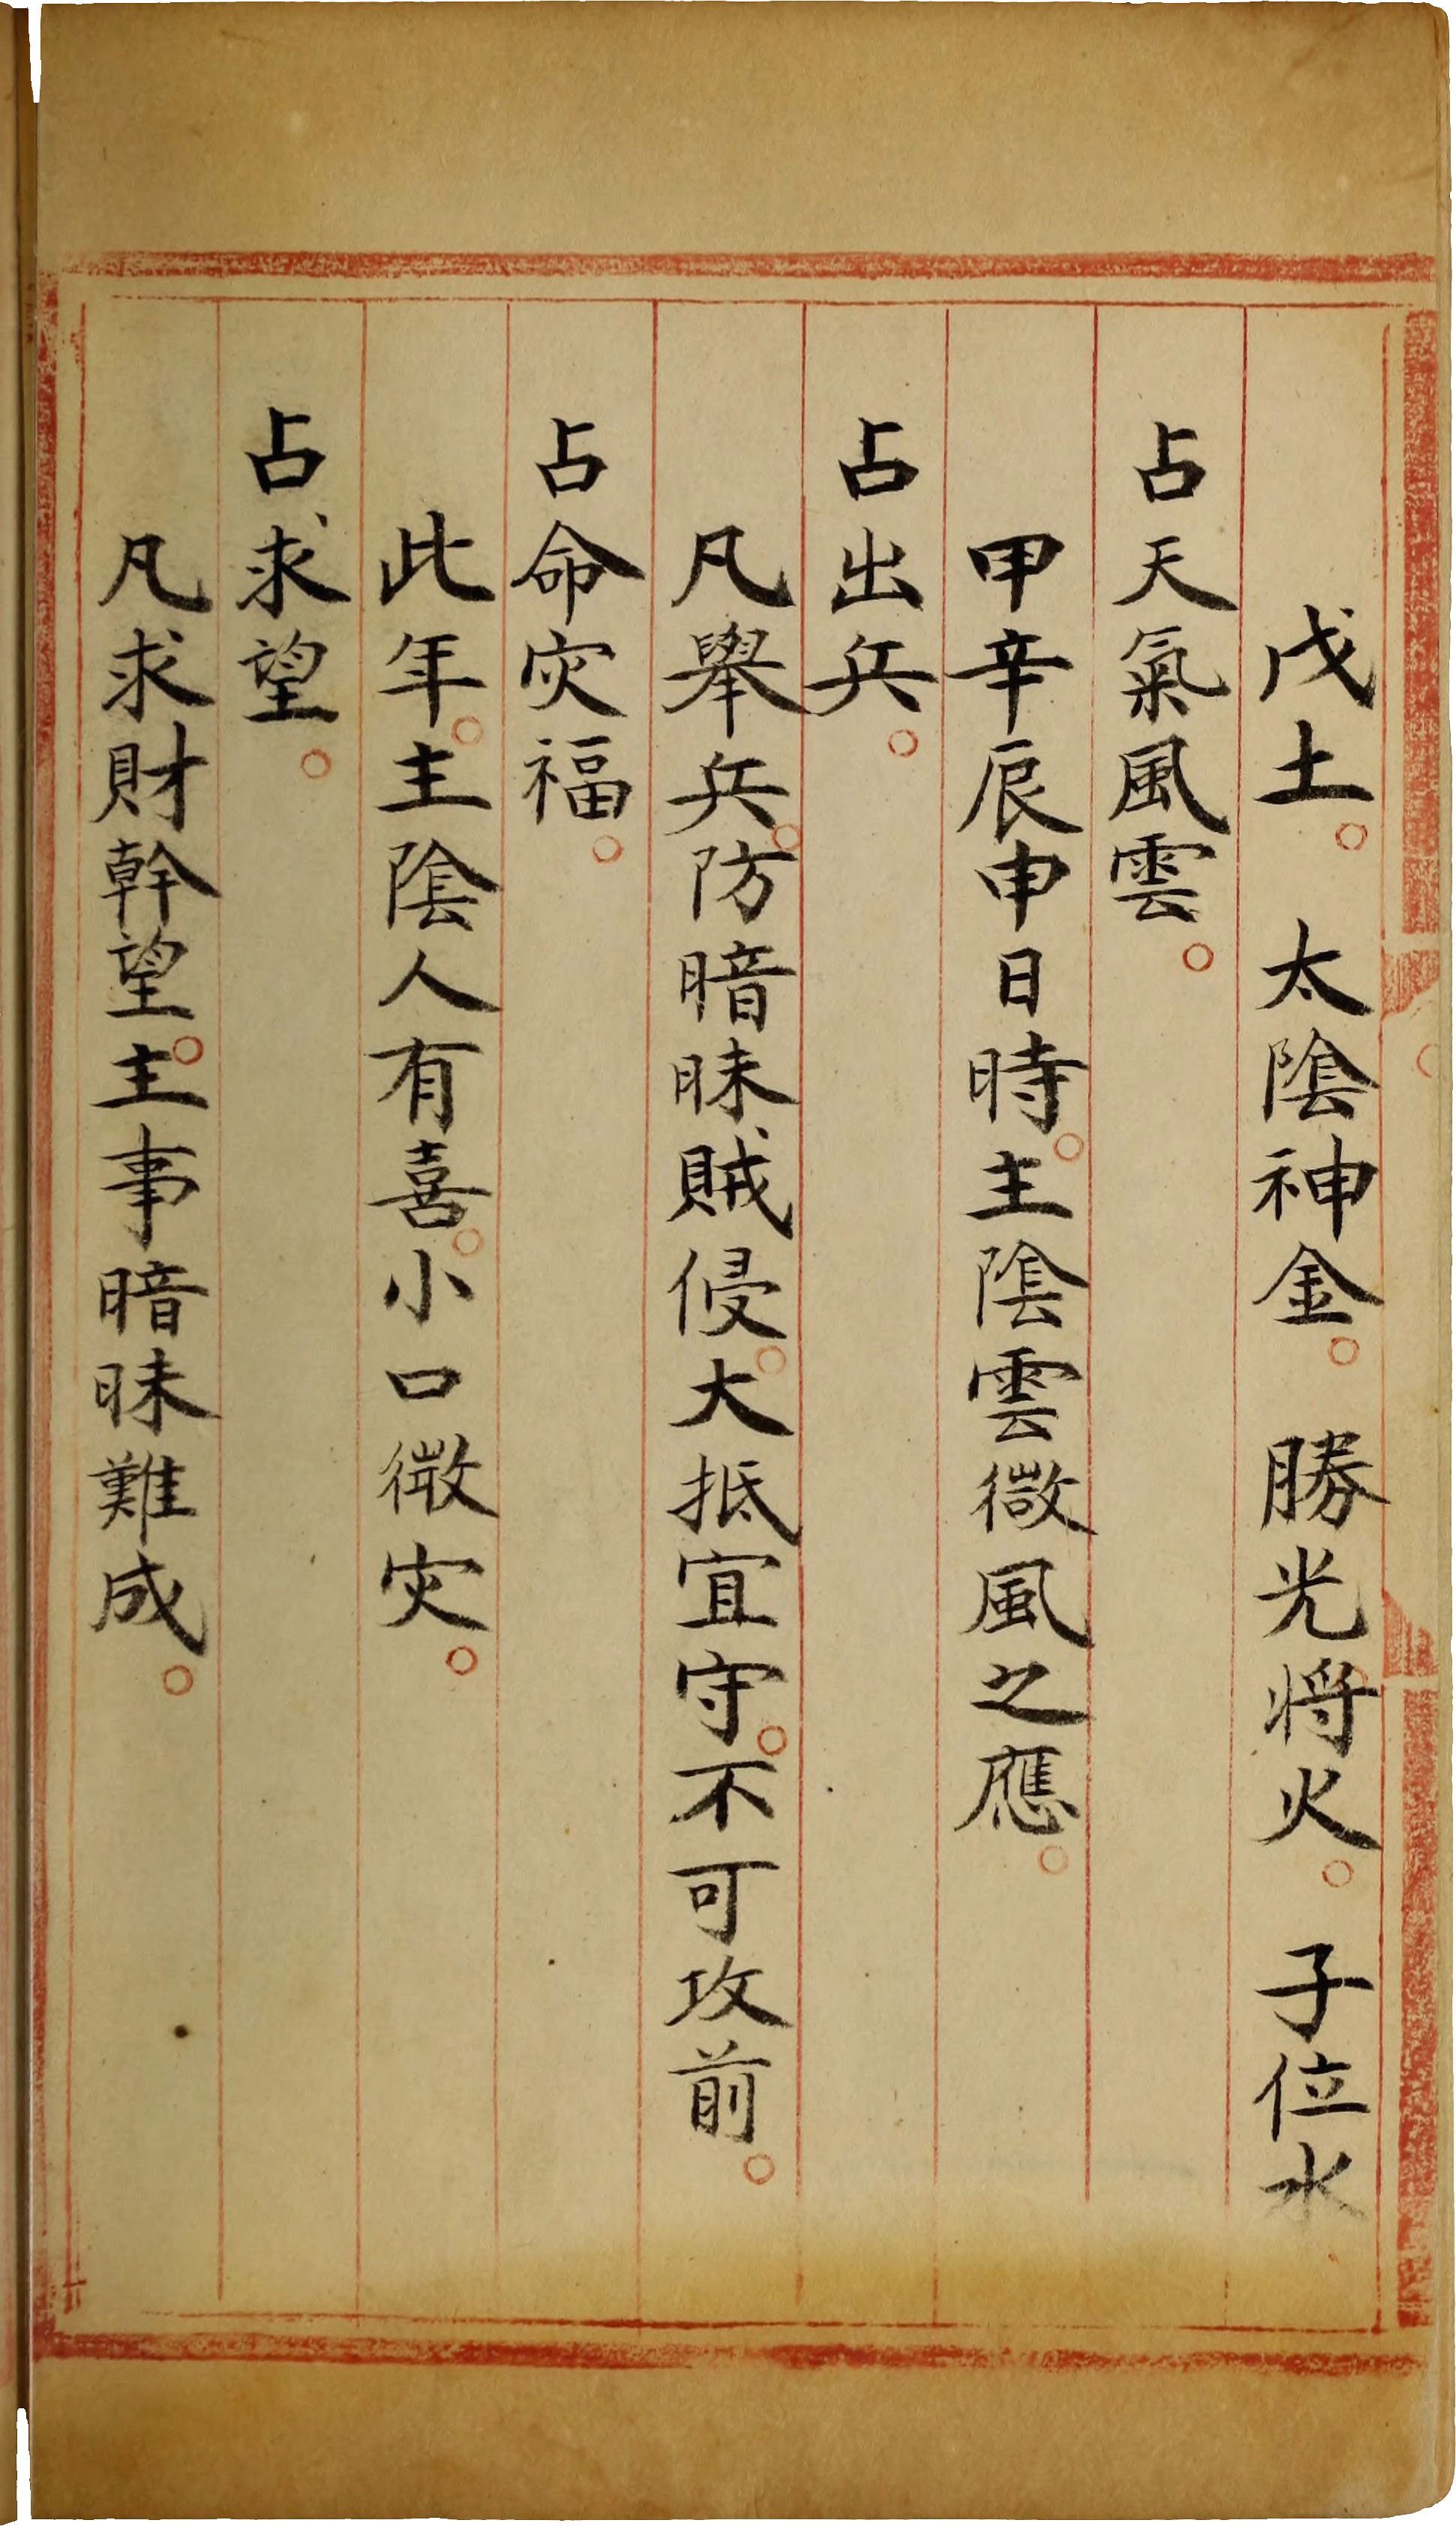 戊土。太陰神金。勝光将火。子位水
占天氣風雲。
甲辛辰申日時。主陰雲微風之應。
占出兵。
凡舉兵。防暗昧賊侵。大抵宜守。不可攻前。
占命灾福。
此年。主陰人有喜。小口微灾。
占求望。
凡求財幹望。主事暗昧難成。